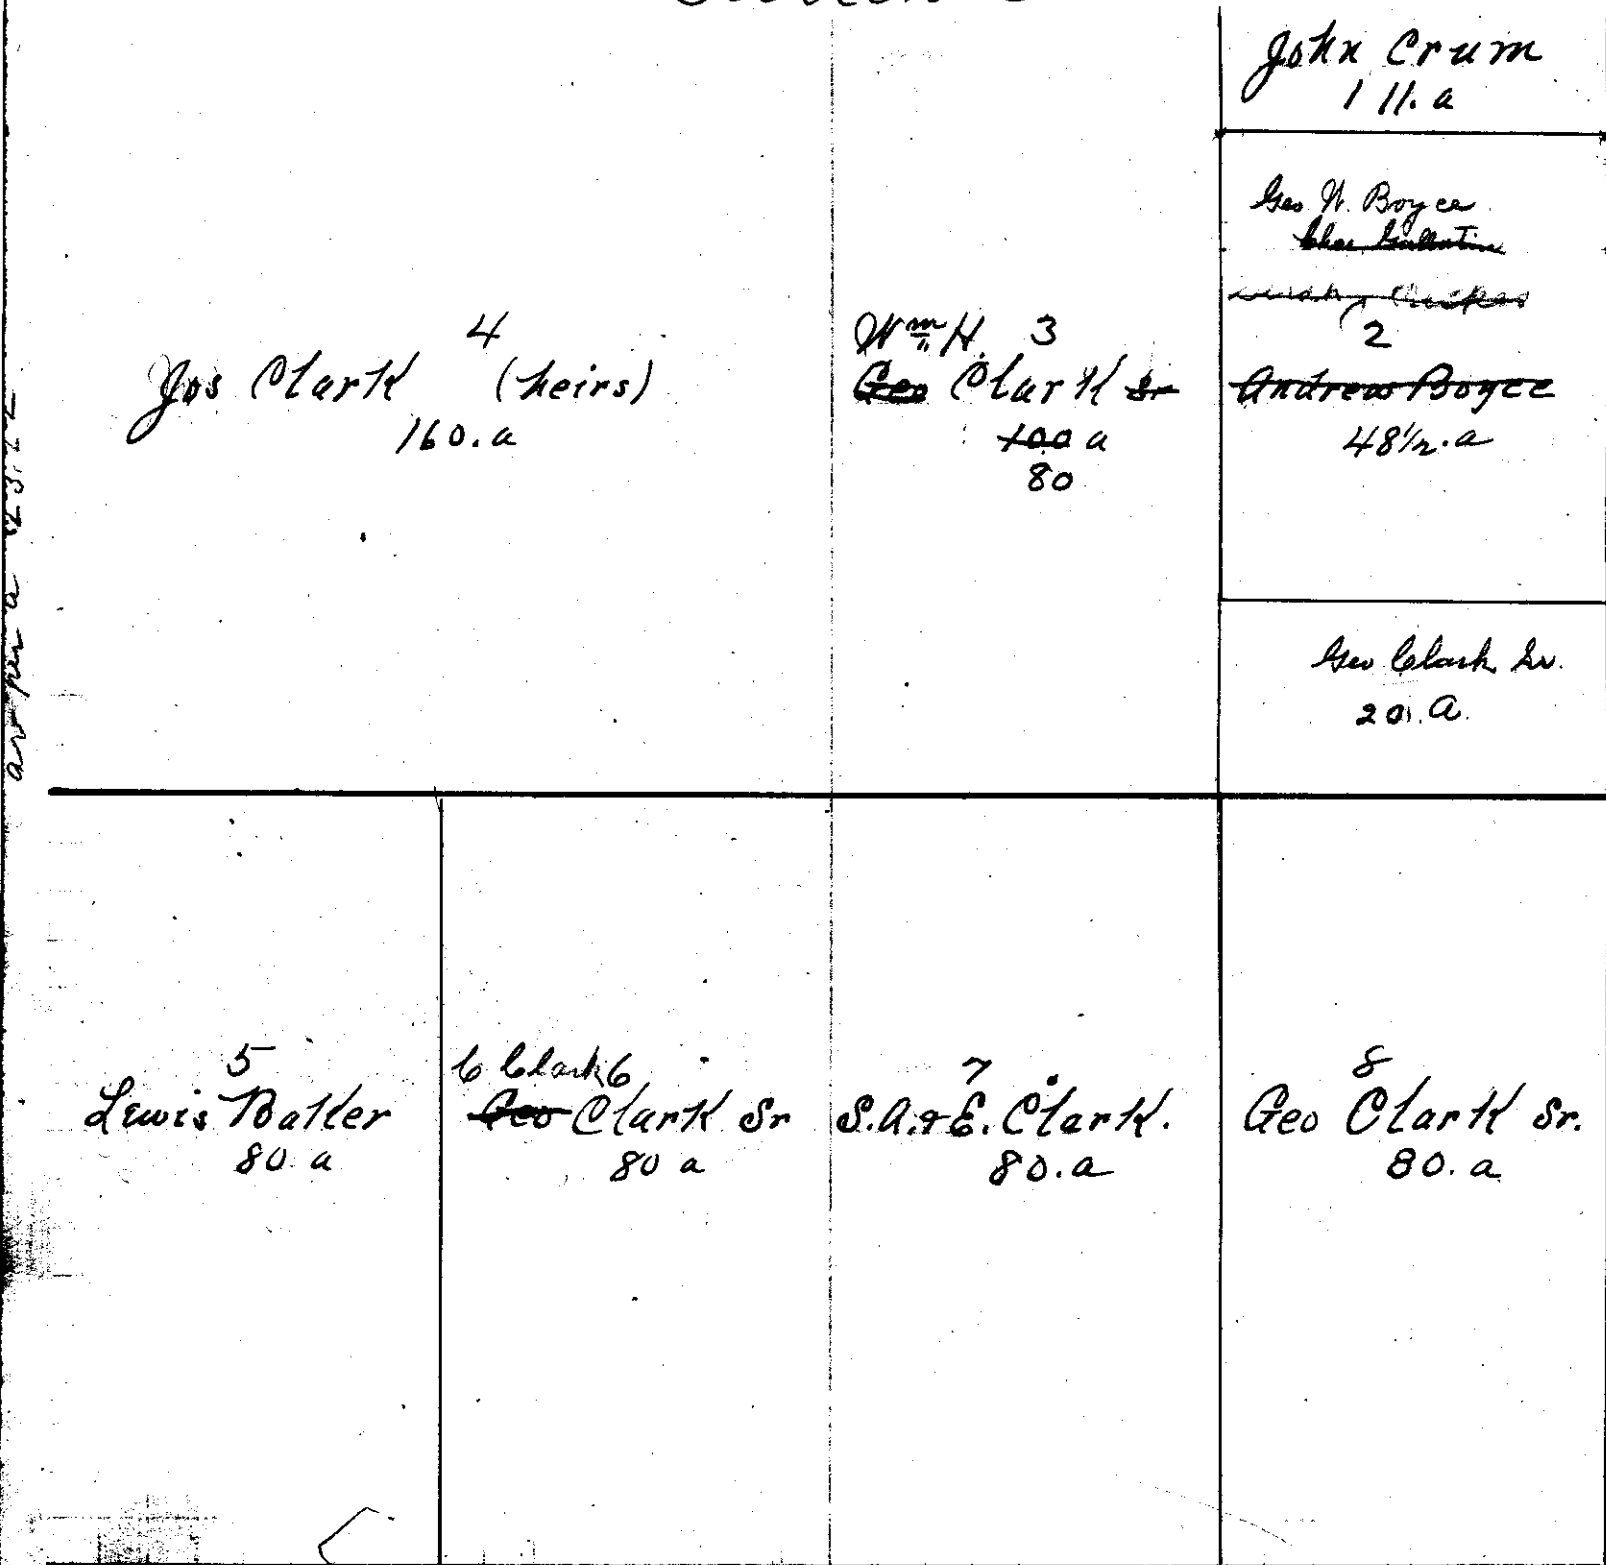 John Crum
1 11. a
Geo W. Boyce
Chas Gallentine
2
Andrew Boyce
48½. a
4
Jos Clark (heirs)
160. a
Wm H. 3
Geo Clark Sr
100 a
80
Geo Clark Sr.
20. A.
5
Lewis Baker
80 a
C Clark 6
Geo Clark Sr
80 a
7
S.A. & E. Clark.
80. a
8
Geo Clark Sr.
80. a